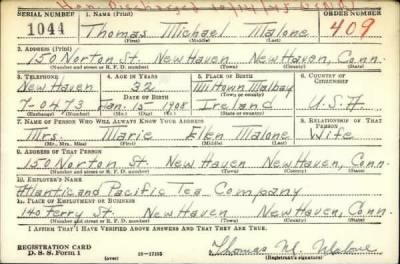 Hon. Discharged
SERIAL NUMBER 1. NAME (Print) ORDER NUMBER
1044 Thomas Michael Malone 409
(First) (Middle) (Last)
2. ADDRESS (Print)
150 Norton St. New Haven New Haven, Conn.
(Number and street or R. F. D. number) (Town) (County) (State)
3. TELEPHONE 4. AGE IN YEARS 5. PLACE OF BIRTH 6. COUNTRY OF CITIZENSHIP
New Haven 32 Miltown Malbay
DATE OF BIRTH (Town or county)
7-0473 Jan. 15 1908 Ireland U.S.A
(Exchange) (Number) (Mo.) (Day) (Yr.) (State or country)
7. NAME OF PERSON WHO WILL ALWAYS KNOW YOUR ADDRESS 8. RELATIONSHIP OF THAT PERSON
Mrs. Marie Ellen Malone Wife
(Mr., Mrs., Miss) (First) (Middle) (Last)
9. ADDRESS OF THAT PERSON
150 Norton St. New Haven New Haven, Conn.
(Number and street or R. F. D. number) (Town) (County) (State)
10. EMPLOYER'S NAME
Atlantic and Pacific Tea Company
11. PLACE OF EMPLOYMENT OR BUSINESS
140 Ferry St. New Haven New Haven, Conn.
(Number and street or R. F. D. number) (Town) (County) (State)
I AFFIRM THAT I HAVE VERIFIED ABOVE ANSWERS AND THAT THEY ARE TRUE.
REGISTRATION CARD
D. S. S. Form 1 (over) 16—17105 Thomas M. Malone
(Registrant's signature)